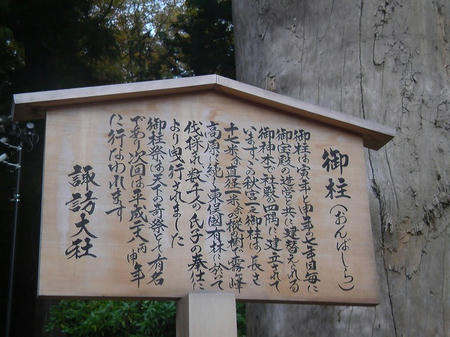 御柱(おんばしら)
御柱は寅年と申年の七年目毎に
御宝殿の造営と共に建替えられる
御神木で社殿の四隅に建立されて
います この秋宮一之御柱は長さ
十七米 直径一米余の樅樹で霧峰
高原に続く東俣国有林に於いて
伐採され数千人の氏子の奉仕に
より曳行されました
御柱祭は天下の奇祭として有名
であり次回は平成二八丙申年
に行なわれます
諏訪大社